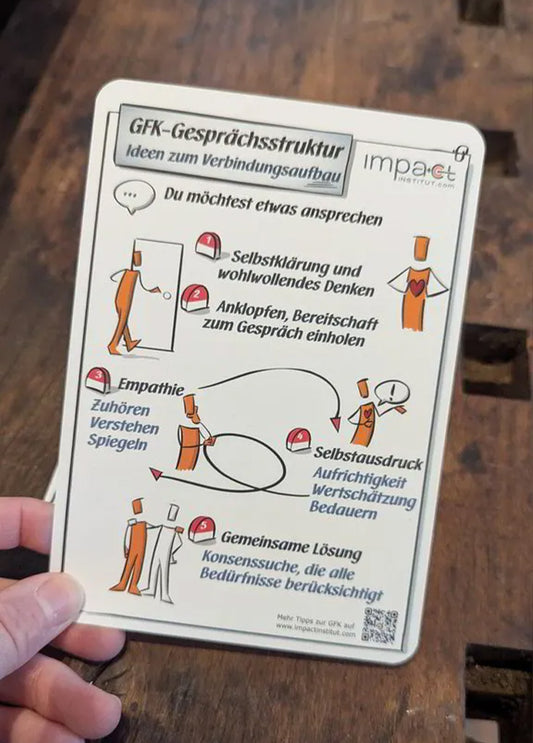 GFK-Gesprächsstruktur
Ideen zum Verbindungsaufbau
impact
INSTITUT.com
...
Du möchtest etwas ansprechen
1
Selbstklärung und
wohlwollendes Denken
2
Anklopfen, Bereitschaft
zum Gespräch einholen
3
Empathie
Zuhören
Verstehen
Spiegeln
!
4
Selbstausdruck
Aufrichtigkeit
Wertschätzung
Bedauern
5
Gemeinsame Lösung
Konsenssuche, die alle
Bedürfnisse berücksichtigt
Mehr Tipps zur GFK auf
www.impactinstitut.com